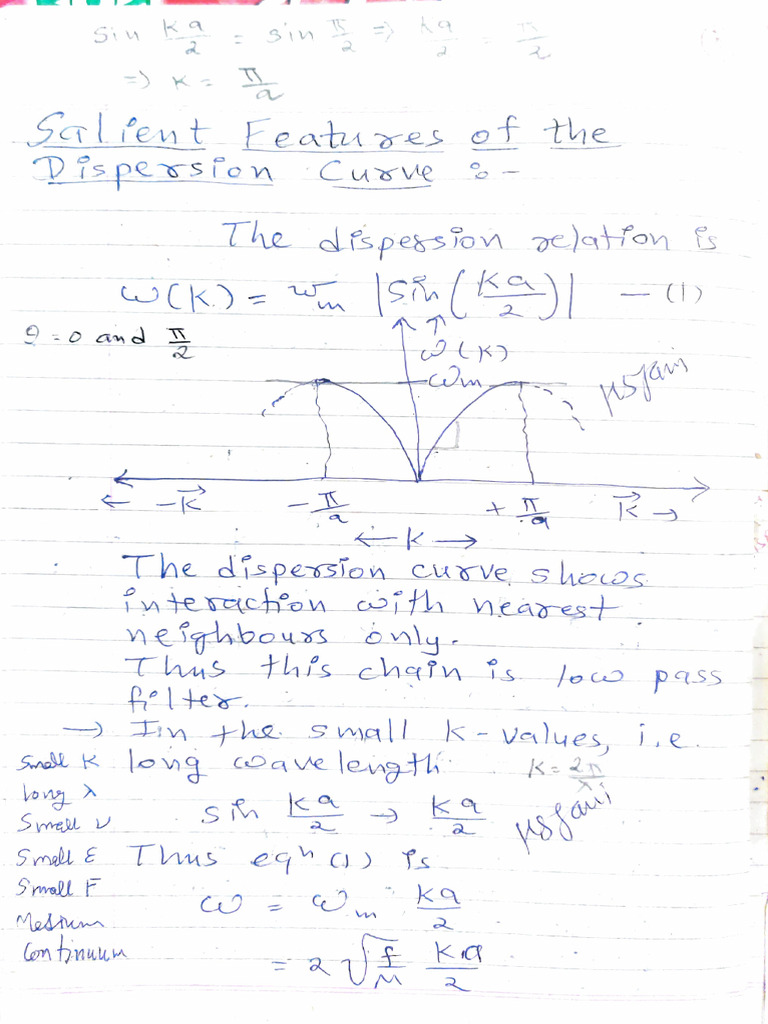 sin ka/2 = sin π/2 => ka/2 = π/2
=> K = π/a
Salient Features of the
Dispersion Curve :-
The dispersion relation is
ω(K) = ωm |sin(Ka/2)| — (1)
θ = 0 and π/2
ω(K)
ωm
← -K⃗ -π/a +π/a K⃗ →
← K →
The dispersion curve shows
interaction with nearest
neighbours only.
Thus this chain is low pass
filter.
→ Iin the small K-values, i.e.
Small K long wavelength. K = 2π/λ
long λ
Small ν sin Ka/2 → Ka/2
Small E Thus eqn (1) is
Small F ω = ωm Ka/2
Medium
Continuum = 2 √f/M Ka/2